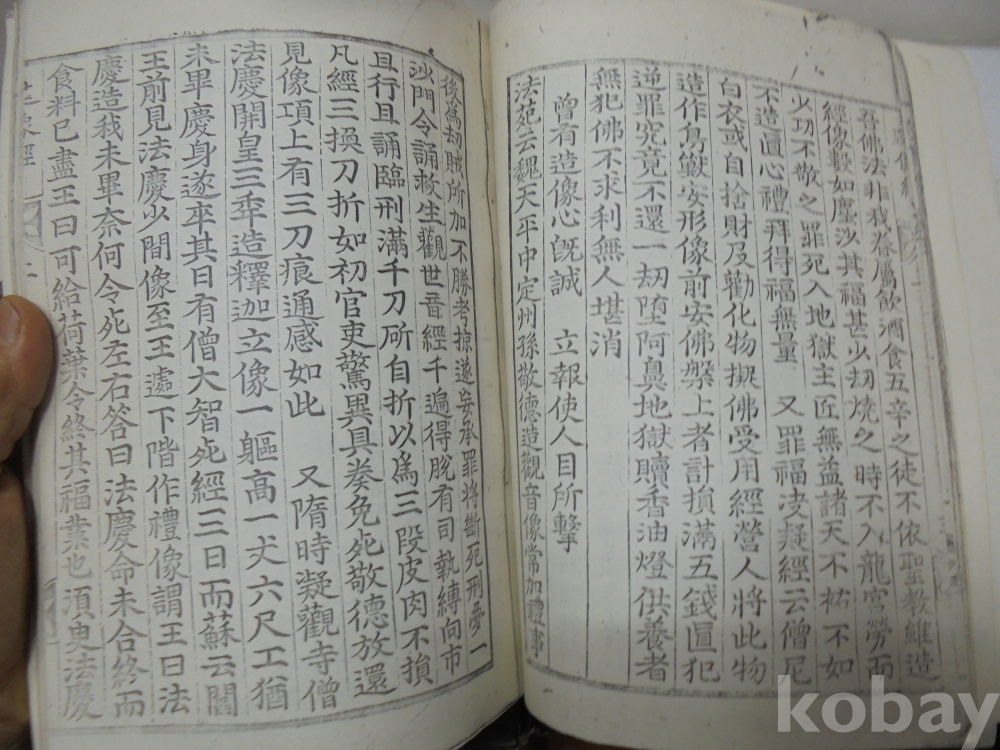 吾佛法非我眷屬飮酒食五辛之徒不依聖敎雖造
經像數如塵沙其福甚少劫燒之時不入龍宮勞而
少功不敬之罪死入地獄主匠無益諸天不祐不如
不造眞心禮拜得福無量 又罪福决疑經云僧尼
白衣或自捨財及勸化物擬佛受用經營人將此物
造作鳥獸安形像前安佛槃上者計損滿五錢眞犯
逆罪究竟不還一劫墮阿鼻地獄贖香油燈供養者
無犯佛不求利無人堪消
曾有造像心旣誠 立報使人目所擊
法苑云魏天平中定州孫敬德造觀音像常加禮事
後爲劫賊所加不勝考掠遂妄承罪將斷死刑夢一
沙門令誦救生觀世音經千遍得脫有司執縛向市
且行且誦臨刑滿千刀所自折以爲三段皮肉不損
凡經三換刀折如初官吏驚異具奏免死敬德放還
見像項上有三刀痕通感如此 又隋時凝觀寺僧
法慶開皇三年造釋迦立像一軀高一丈六尺工猶
未畢慶身遂卒其日有僧大智死經三日而蘇云閻
王前見法慶少間像至王遽下階作禮像謂王曰法
慶造我未畢奈何令死左右答曰法慶命未合終而
食料已盡王曰可給荷葉令終其福業也須臾法慶
kobay